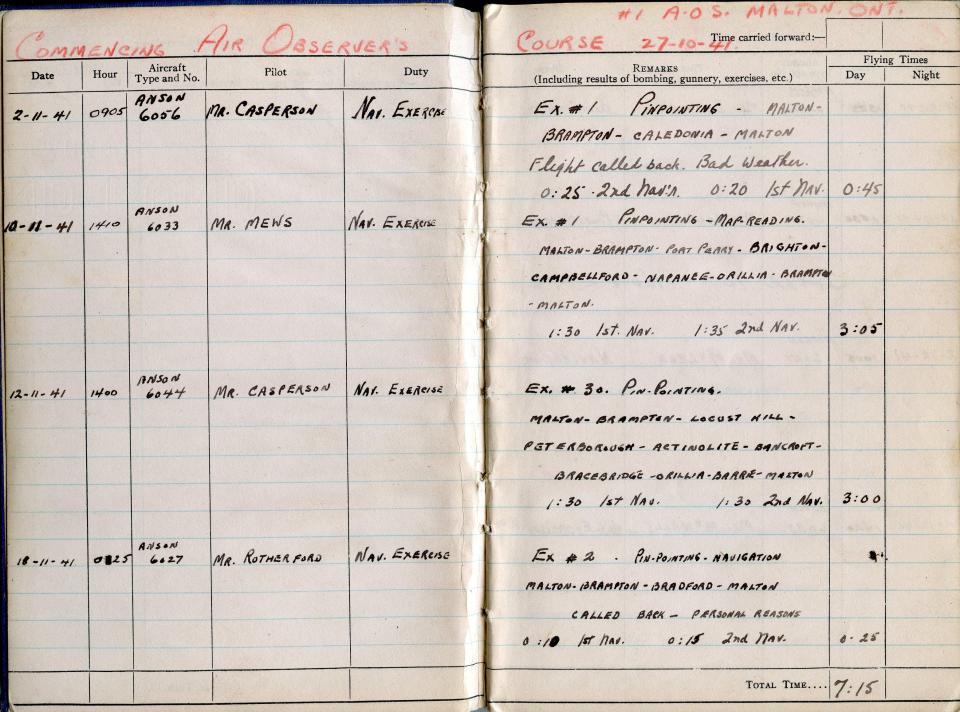 #1 A.O.S. MALTON. ONT.
COMMENCING AIR OBSERVER'S COURSE 27-10-41.
Time carried forward:—
Date Hour Aircraft Type and No. Pilot Duty REMARKS (Including results of bombing, gunnery, exercises, etc.) Flying Times Day Night
2-11-41 0905 ANSON 6056 MR. CASPERSON NAV. EXERCISE EX. #1 PINPOINTING - MALTON-
BRAMPTON- CALEDONIA - MALTON
Flight called back. Bad Weather.
0:25 2nd Nav'n. 0:20 1st Nav. 0:45
10-11-41 1410 ANSON 6033 MR. MEWS NAV. EXERCISE EX. #1 PINPOINTING -MAP-READING.
MALTON-BRAMPTON- PORT PERRY- BRIGHTON-
CAMPBELLFORD- NAPANEE-ORILLIA-BRAMPTON
-MALTON.
1:30 1st. NAV. 1:35 2nd NAV. 3:05
12-11-41 1400 ANSON 6044 MR. CASPERSON NAV. EXERCISE EX. # 30. PIN-POINTING.
MALTON-BRAMPTON- LOCUST HILL-
PETERBOROUGH - ACTINOLITE- BANCROFT-
BRACEBRIDGE -ORILLIA-BARRE- MALTON
1:30 1st NAV. 1:30 2nd NAV. 3:00
-11-41 ANSON 6027 MR. ROTHERFORD NAV. EXERCISE EX #2 . PIN-POINTING- NAVIGATION
MALTON-BRAMPTON-BRADFORD- MALTON
CALLED BACK - PERSONAL REASONS
0:10 1st NAV. 0:15 2nd NAV. 0-25
TOTAL TIME.... 7:15